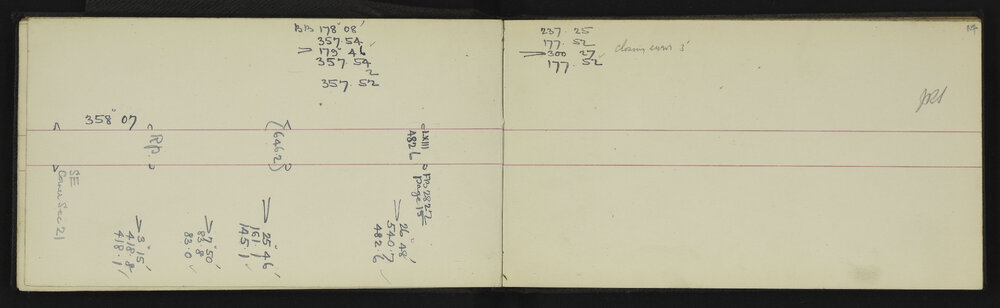 BB 178° 08'
357.54
> 179° 46'
357.54
2
357.52
358° 07
Rp.
(6462)
LXIII
482 6
FB 2827
page 15
SE
Corner Sec 21
> 3° 15'
418.8
418.1
> 7° 50'
83.8
83.0
> 25° 46'
161.1
145.1
> 26° 48'
540.7
482.6
237. 25
177. 52
> 300 27
177. 52
closing error 3'